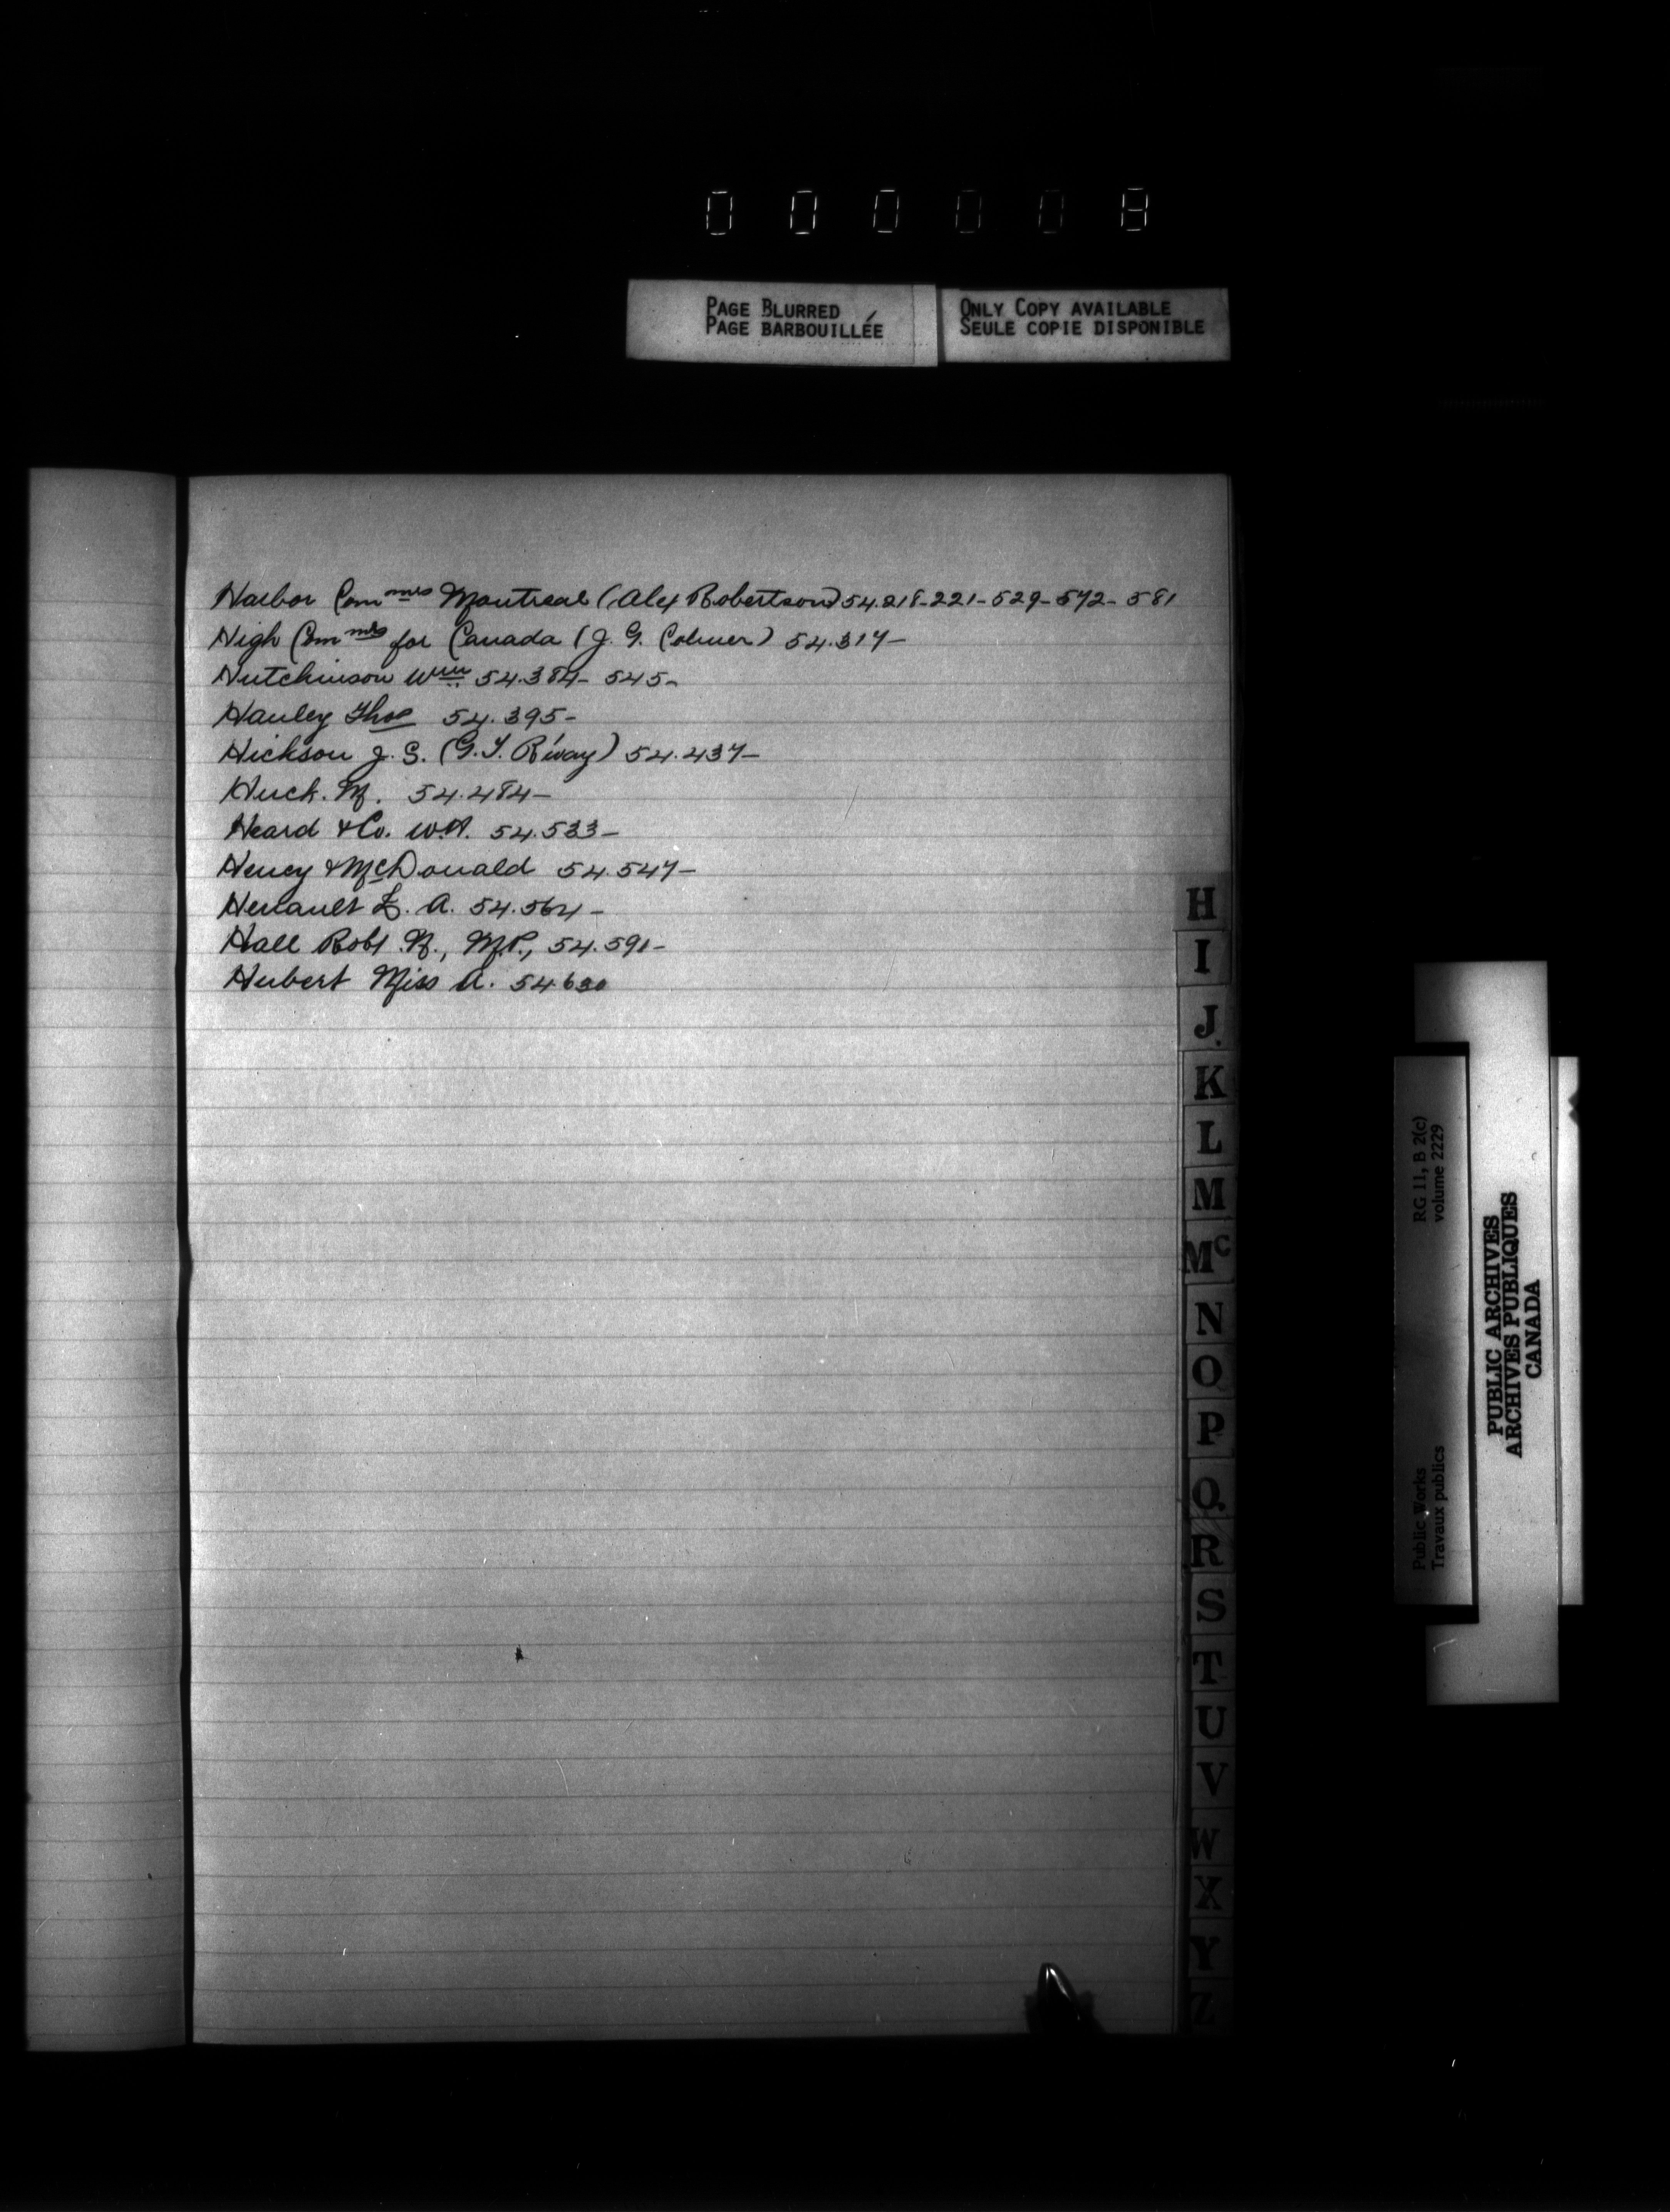 000008
PAGE BLURRED
PAGE BARBOUILLÉE
ONLY COPY AVAILABLE
SEULE COPIE DISPONIBLE
Harbor Commrs Montreal (Alex Robertson) 54.218-221-529-572-581
High Commrs for Canada (J. G. Colmer) 54.317-
Hutchinson Wm 54.384-545-
Hanley Thos 54.395-
Hickson J. S. (G. T. R'way) 54.437-
Huck. M. 54.484-
Heard & Co. W.A. 54.533-
Heney & McDonald 54.547-
Henault L. A. 54.564-
Hall Robt N., M.P., 54.591-
Hubert Miss A. 54.630
H
I
J
K
L
M
Mc
N
O
P
Q
R
S
T
U
V
W
X
Y
Z
RG 11, B 2(c)
volume 2229
Public Works
Travaux publics
PUBLIC ARCHIVES
ARCHIVES PUBLIQUES
CANADA